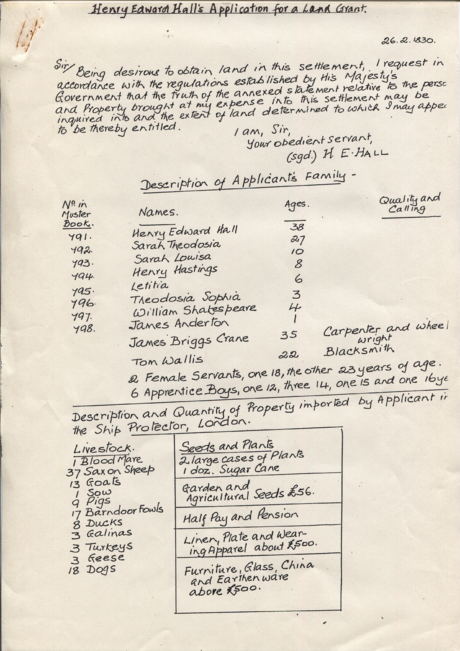 Henry Edward Hall's Application for a Land Grant.
26.2.1830.
Sir/ Being desirous to obtain land in this settlement, I request in
accordance with the regulations established by His Majesty's
Government that the truth of the annexed statement relative to the
and Property brought at my expense into this settlement may be
inquired into and the extent of land determined to which I may
to be thereby entitled.
I am, Sir,
Your obedient servant,
(sgd.) H E. HALL
Description of Applicant's Family -
No in
Muster
Book.
Names.
Ages.
Quality and
Calling
791. Henry Edward Hall 38
792. Sarah Theodosia 27
793. Sarah Louisa 10
794. Henry Hastings 8
795. Letitia 6
796. Theodosia Sophia 3
797. William Shakespeare 4
798. James Anderton 1
James Briggs Crane 35 Carpenter and wheel
wright
Tom Wallis 22 Blacksmith
2 Female Servants, one 18, the other 23 years of age.
6 Apprentice Boys, one 12, three 14, one 15 and one 16
Description and Quantity of Property imported by Applicant in
the Ship Protector, London.
Livestock.
1 Blood Mare
37 Saxon Sheep
13 Goats
1 Sow
9 Pigs
17 Barndoor Fowls
8 Ducks
3 Galinas
3 Turkeys
3 Geese
18 Dogs
Seeds and Plants
2 large cases of Plants
1 doz. Sugar Cane
Garden and
Agricultural Seeds £56.
Half Pay and Pension
Linen, Plate and Wear-
ing Apparel about £500.
Furniture, Glass, China
and Earthenware
above £500.